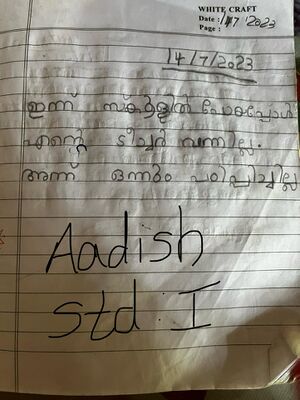 WHITE CRAFT
Date : 14/7/2023
Page :
14/7/2023
ഇന്ന് സ്കൂളിൽ പോയപ്പോൾ
എന്റെ ടീച്ചർ വന്നില്ല.
അന്ന് ഒന്നും പഠിപ്പിച്ചില്ല
Aadish
Std : I